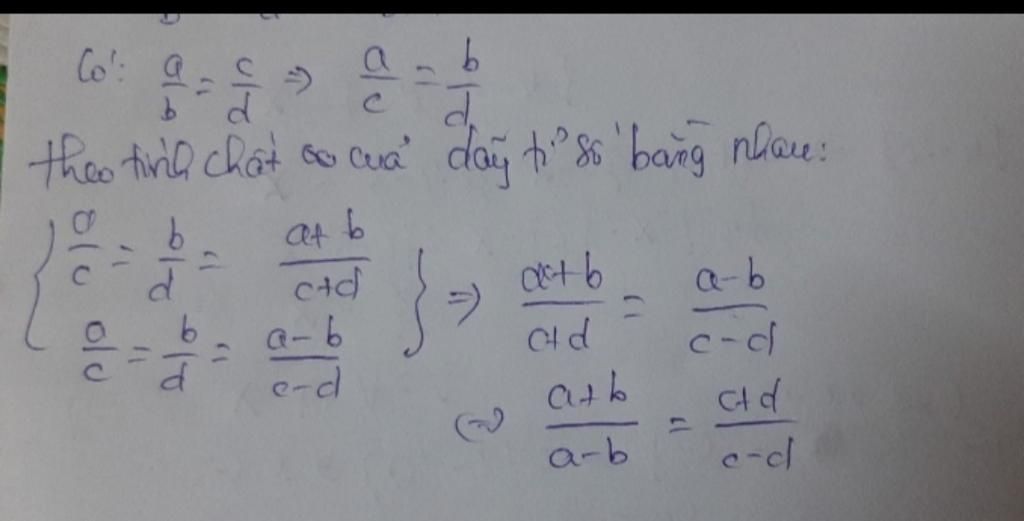 Có: a/b = c/d => a/c = b/d
theo tính chất của dãy tỉ số bằng nhau:
{ a/c = b/d = (a+b)/(c+d)
a/c = b/d = (a-b)/(c-d) } => (a+b)/(c+d) = (a-b)/(c-d)
<=> (a+b)/(a-b) = (c+d)/(c-d)